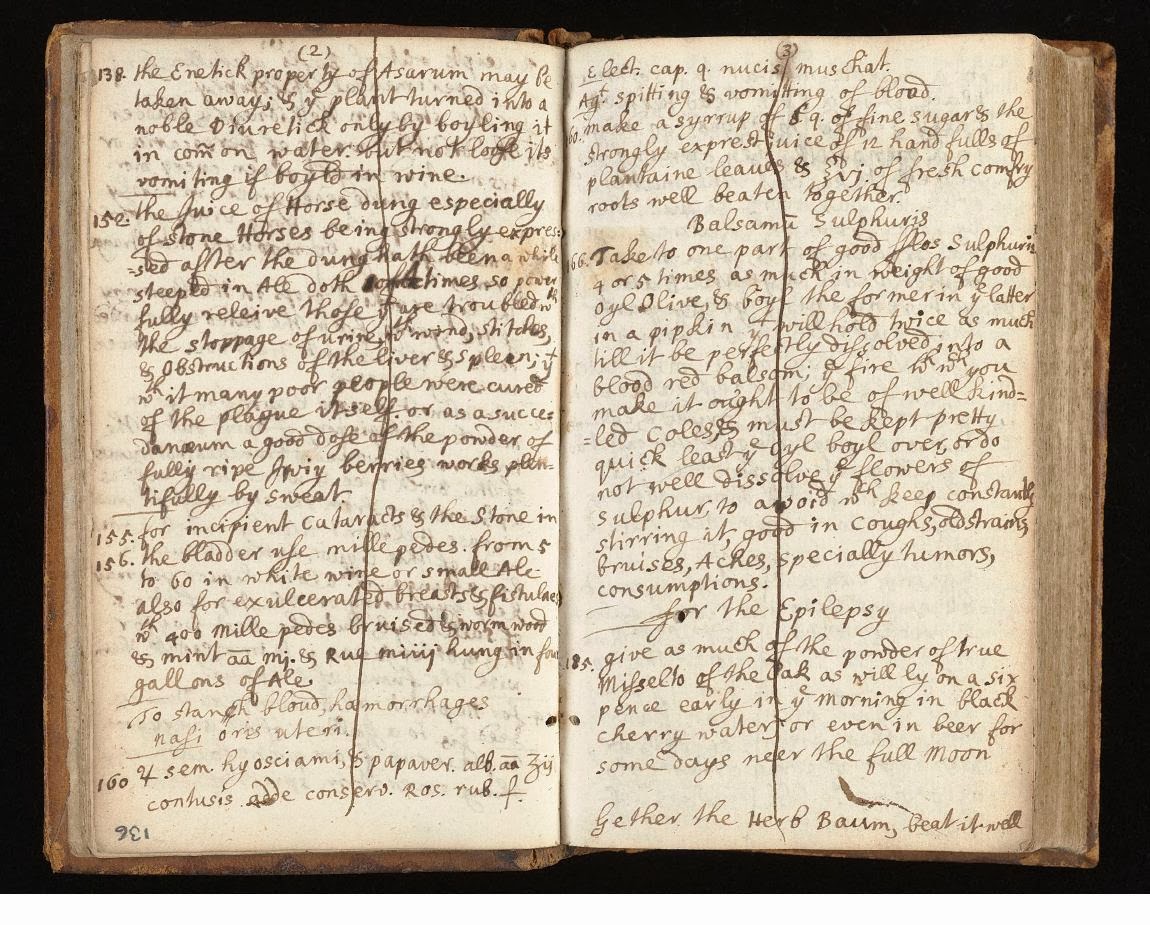 (2)
138. the Emetick property of Asarum may be
taken away; & yͤ plant turned into a
noble Diuretick only by boyling it
in com̄on water. but not loose its
vomiting if boyld in wine.
152. the Juice of Horse dung especially
of stone Horses being strongly expres-
-sed after the dung hath been a while
steeped in Ale doth so power
fully releive those yͭ are troubled wͭʰ
the stoppage of urine, wͭʰ wind, stitches,
& Obstructions of the Liver & Spleen; yͭ
wͭʰ it many poor people were cured
of the plague itself. or as a succe:
danæum a good dose of the powder of
fully ripe Jviy berries works plen-
tifully by sweat.
155. for incipient Cataracts & the Stone in
156. the bladder use millepedes. from 5
to 60 in white wine or small Ale
also for exulcerated breasts & fistulaes
wͭʰ 400 Mille pedes bruised & wormwood
& mint āā mj. & Rue miiij hung in four
gallons of Ale.
To stanch bloud, hæmorrhages
nasi oris uteri.
160 ♃ sem. hyosciami, & papaver. alb. āā ʒij
contusis adde conserv. Ros. rub. ƒ.
136
(3)
Elect. cap. q. nucis muschat.
Agͭ. spitting & vomitting of bloud.
60. make a syrrup of ſ. q. of fine sugar & the
strongly exprest juice of 12 handfulls of
plantaine leaves & ℥vj. of fresh comfry
roots well beaten together.
Balsamū Sulphuris
166. Take to one part of good fflos Sulphuris
4 or 5 times as much in weight of good
oyl Olive, & boyl the former in yͤ latter
in a pipkin yͭ will hold twice as much
till it be perfectly dissolved into a
blood red balsom; yͤ fire wͭʰ wͨʰ you
make it ought to be of well kind=
=led Coles & must be kept pretty
quick least yͤ oyl boyl over, or do
not well dissolve yͤ flowers of
sulphur, to avoid wͨʰ keep constantly
stirring it, good in Coughs, old strains,
bruises, Aches, specially tumors,
consumptions.
for the Epilepsy
185. give as much of the powder of true
Misselto of the Oak as will ly on a six
pence early in yͤ morning in black
cherry water or even in beer for
some days neer the full Moon
Gether the Herb Baum, beat it well